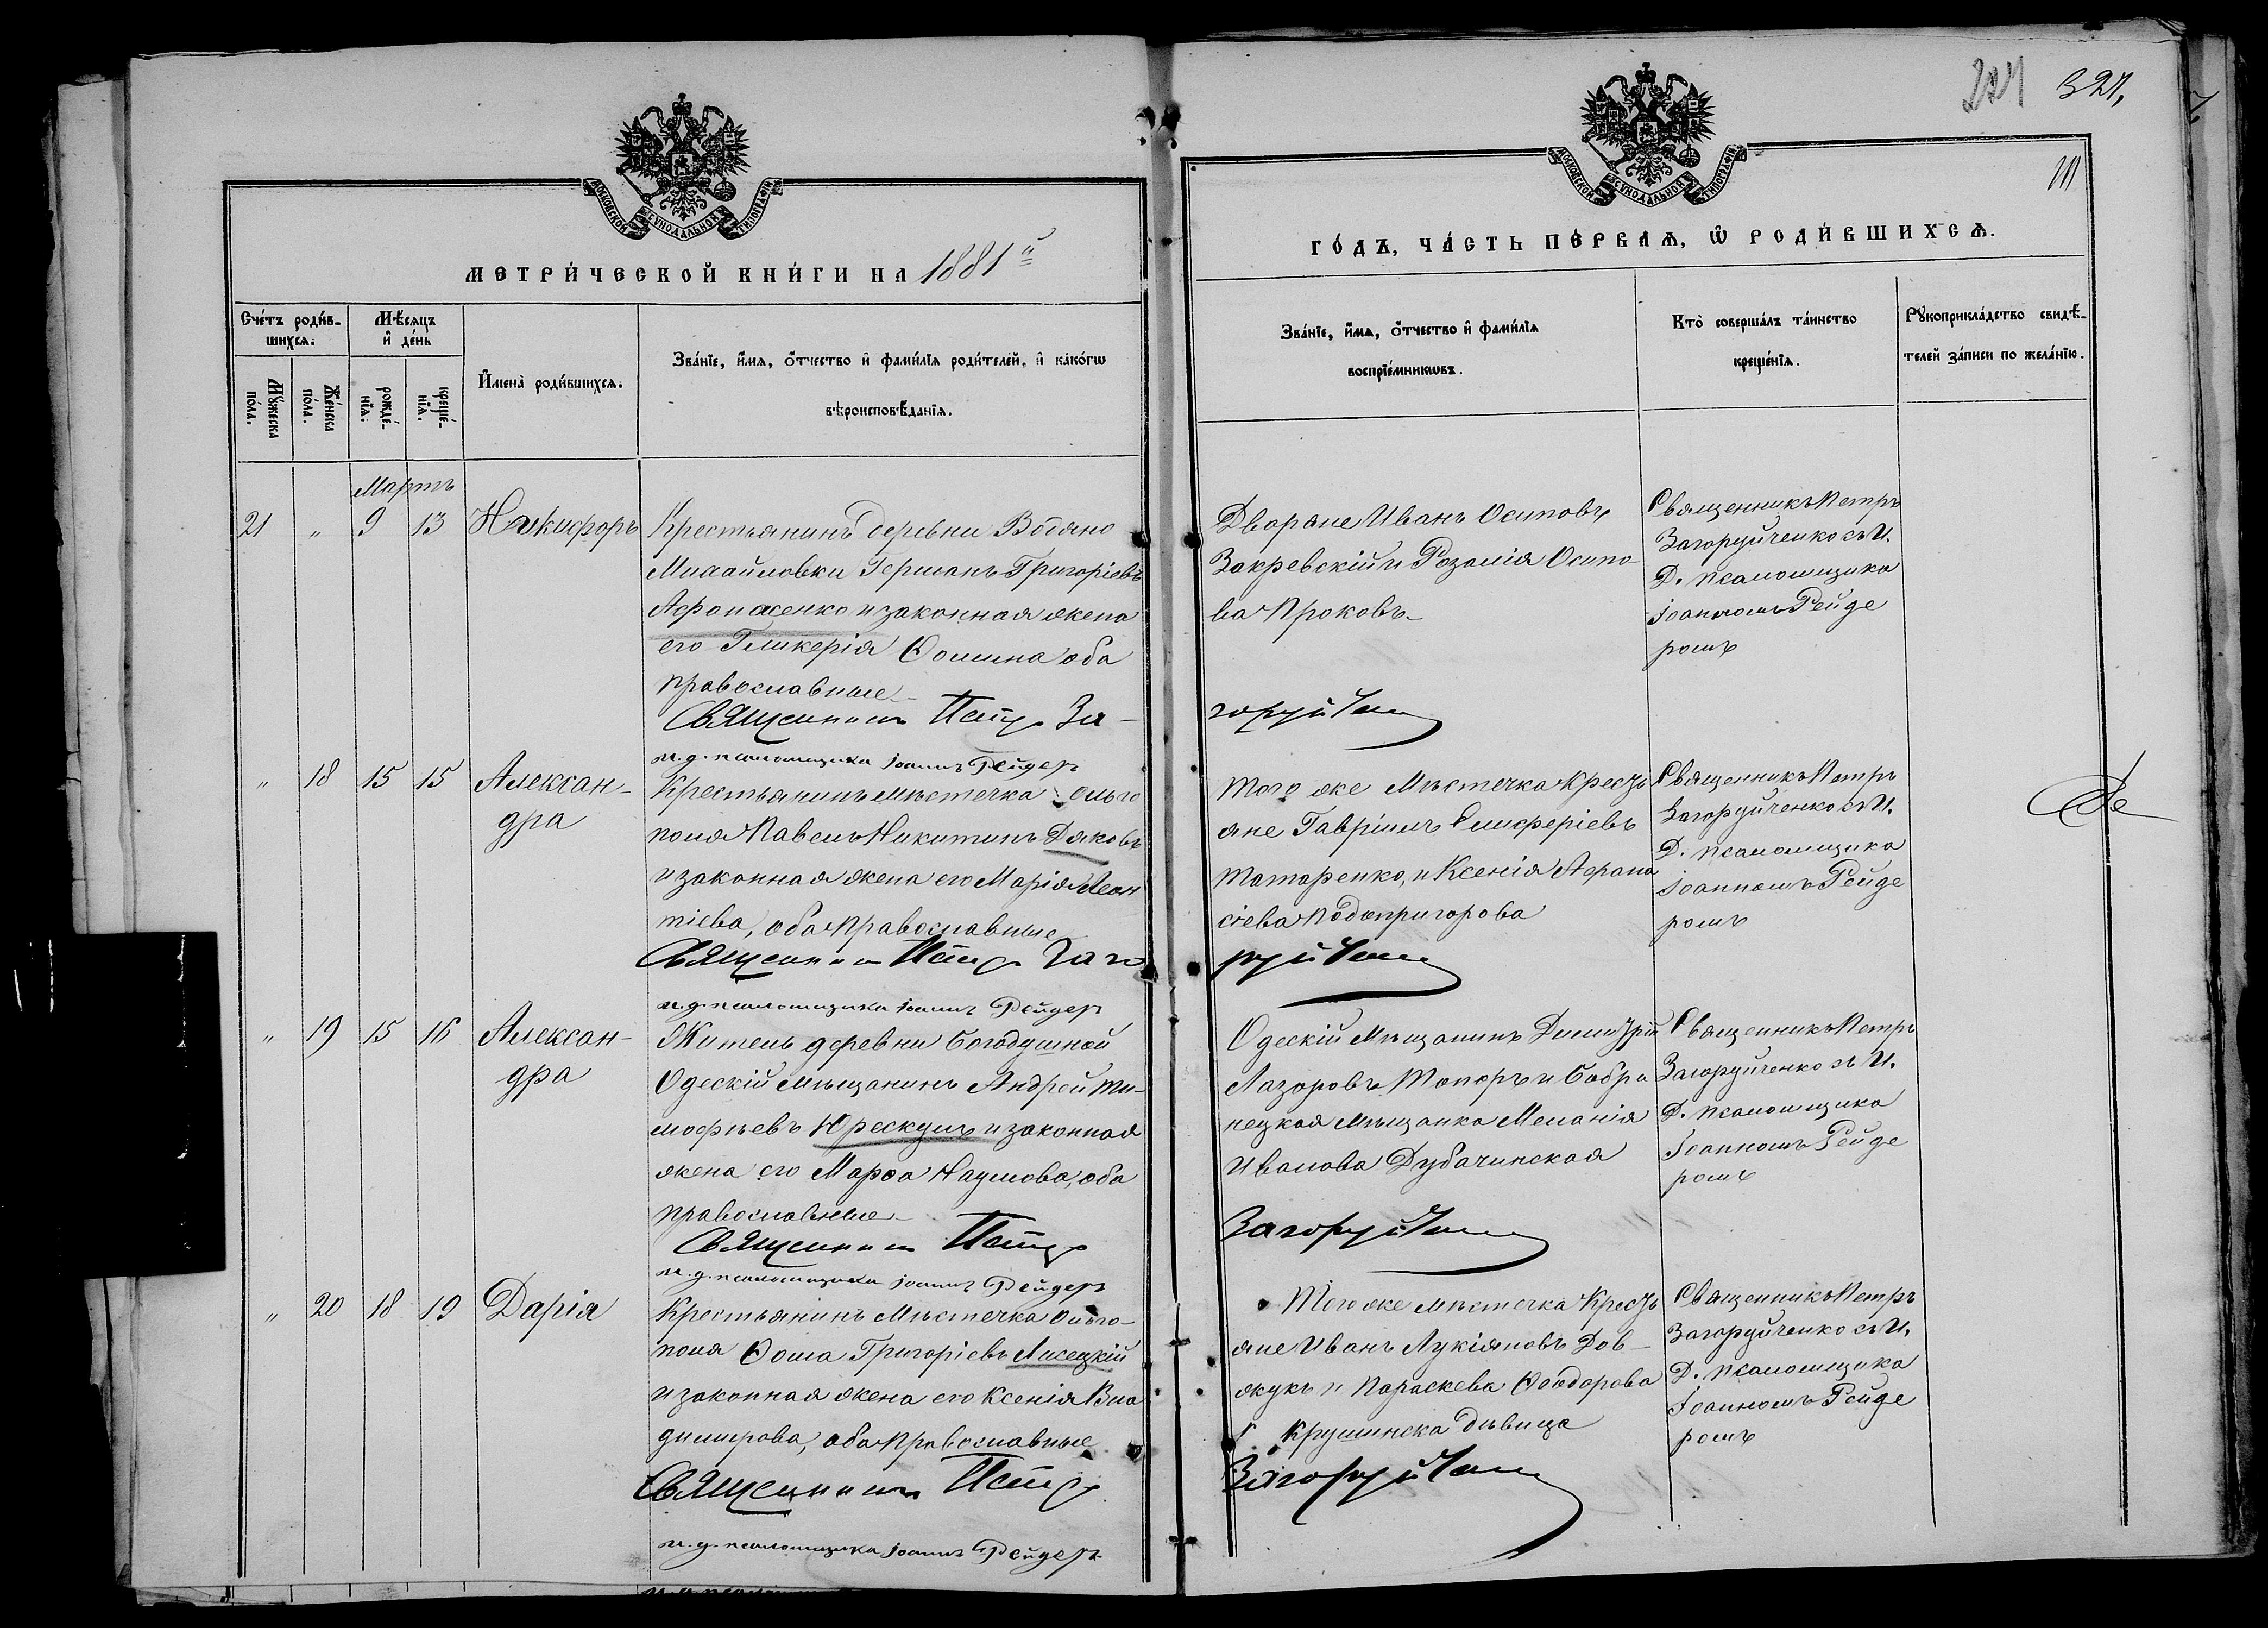 МОСКОВСКОЙ СѴНОДАЛЬНОЙ ТИПОГРАФІИ
МЕТРИ́ЧЕСКОЙ КНИ́ГИ НА 1881й
Сче́тъ роди́в-
шихсѧ.
Мѣ́сѧцъ
и҆ де́нь
Мꙋ́жеска
по́ла.
Же́нска
по́ла.
рожде́-
нїѧ.
креще́-
нїѧ.
И҆мена̀ роди́вшихсѧ.
Зва́нїе, и҆́мѧ, ѻ҆́тчество и҆ фами́лїѧ роди́телей, и҆ како́гѡ
вѣроисповѣ́данїѧ.
Мартъ
21 " 9 13 Никифоръ
Крестьянинъ деревни Водяно
Михайловки Германъ Григоріевъ
Афонасенко и законная жена
его Гликерія Ѳомина оба
православные
Священникъ Петръ За-
и.д. псаломщика Іоаннъ Рейдеръ
" 18 15 15 Алексан-
дра
Крестьянинъ мѣстечка Ольго
поля Павелъ Никитинъ Дяковъ
и законная жена его Марія Леон
тіева, оба православные
Священникъ Петръ Заго
и.д. псаломщика Іоаннъ Рейдеръ
" 19 15 16 Алексан-
дра
Житель деревни Богодушной
Одескій мѣщанинъ Андрей Ти-
мофѣевъ Крескулъ и законная
жена его Марѳа Наумова, оба
православные
Священникъ Петръ
и.д. псаломщика Іоаннъ Рейдеръ
" 20 18 19 Дарія
Крестьянинъ мѣстечка Ольго-
поля Ѳома Григоріевъ Лисецкій
и законная жена его Ксенія Вла
димирова, оба православные
Священникъ Петръ
и.д. псаломщика Іоаннъ Рейдеръ
321,
МОСКОВСКОЙ СѴНОДАЛЬНОЙ ТИПОГРАФІИ
ГО́ДЪ, ЧА́СТЬ ПЕ́РВАѦ, Ѡ҆ РОДИ́ВШИХСѦ.
Зва́нїе, и҆́мѧ, ѻ҆́тчество и҆ фами́лїѧ
воспрїе́мникѡвъ.
Кто̀ соверша́лъ та́инство
креще́нїѧ.
Рꙋкоприкла́дство свидѣ́-
телей за́писи по жела́нїю.
Дворяне Иванъ Осиповъ
Закревскій и Розалія Осипо-
ва Проковъ
Священникъ Петръ
Загоруйченко съ И.
Д. псаломщика
Іоанномъ Рейде
ромъ
горуйченко
Того же мѣстечка крестъ
яне Гавріилъ Елисферіевъ
Татаренко, и Ксенія Афана
сіева Подопригорова
Священникъ Петръ
Загоруйченко съ И.
Д. псаломщика
Іоанномъ Рейде
ромъ
руйченко
Одескій мѣщанинъ Димитрій
Лазаровъ Топоръ и Бобри
нецкая мѣщанка Меланія
Иванова Дубачинская
Священникъ Петръ
Загоруйченко съ И.
Д. псаломщика
Іоанномъ Рейде
ромъ
Загоруйченко
Того же мѣстечка крестъ
яне Иванъ Лукіяновъ Дов-
жукъ и Параскева Ѳеодорова
Крушинска дѣвица
Священникъ Петръ
Загоруйченко съ И.
Д. псаломщика
Іоанномъ Рейде
ромъ
Загоруйченко